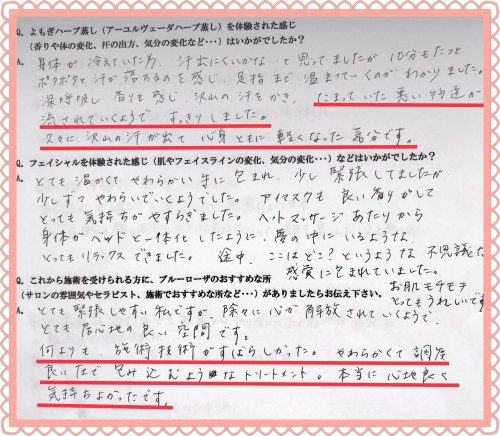 Q. よもぎハーブ蒸し（アーユルヴェーダハーブ蒸し）を体験された感じ
（香りや体の変化、汗の出方、気分の変化など・・・）はいかがでしたか？
A. 身体が冷えていた為、汗出にくいかな…と思ってましたが10分もたつと
ポタポタと汗が落ちるのを感じ、足指まで温まっていくのがわかりました。
深呼吸し香りも感じ、沢山の汗をかき、たまっていた悪い物達が
流されていくようですっきりしました。
久々に沢山の汗が出て心身ともに軽くなった気分です。
Q. フェイシャルを体験された感じ（肌やフェイスラインの変化、気分の変化・・・）などはいかがでしたか？
A. とても温かくてやわらかい手に包まれ、少し緊張してましたが
少しずつやわらいでいくようでした。アイマスクも良い香りがして
とっても気持ちがやすらぎました。ヘッドマッサージあたりから
身体がベッドと一体化したように、夢の中にいるような、
とってもリラックスできました。途中、ここはどこ？というような不思議な
感覚に包まれていました。
お肌もチモチモ
とってもうれしいです
Q. これから施術を受けられる方に、ブルーローザのおすすめな所
（サロンの雰囲気やセラピスト、施術でおすすめな所など・・・）がありましたらお伝え下さい。
A. とても緊張しやすい私ですが、徐々に心が解放されていくようで、
とても居心地の良い空間です。
何よりも、施術技術がすばらしかった。やわらかくて調度
良い圧で包み込むようなトリートメント。本当に心地良く
気持ちよかったです。